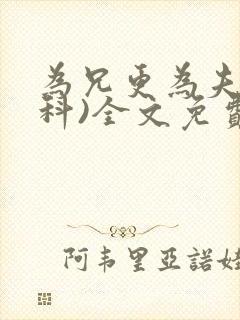 為兄更為夫
科)全文免費
阿韋里亞諾娃